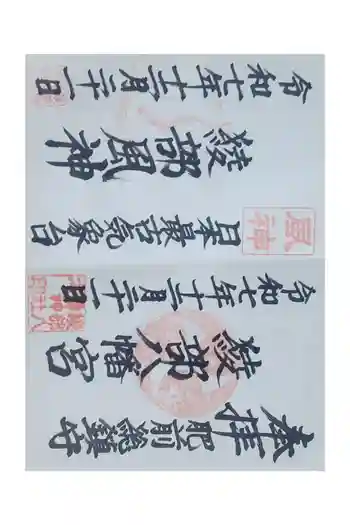 奉拝 肥前総鎮守
綾部八幡宮
令和七年十二月二十一日
日本最古気象台
風神
綾部風神
令和七年十二月二十一日